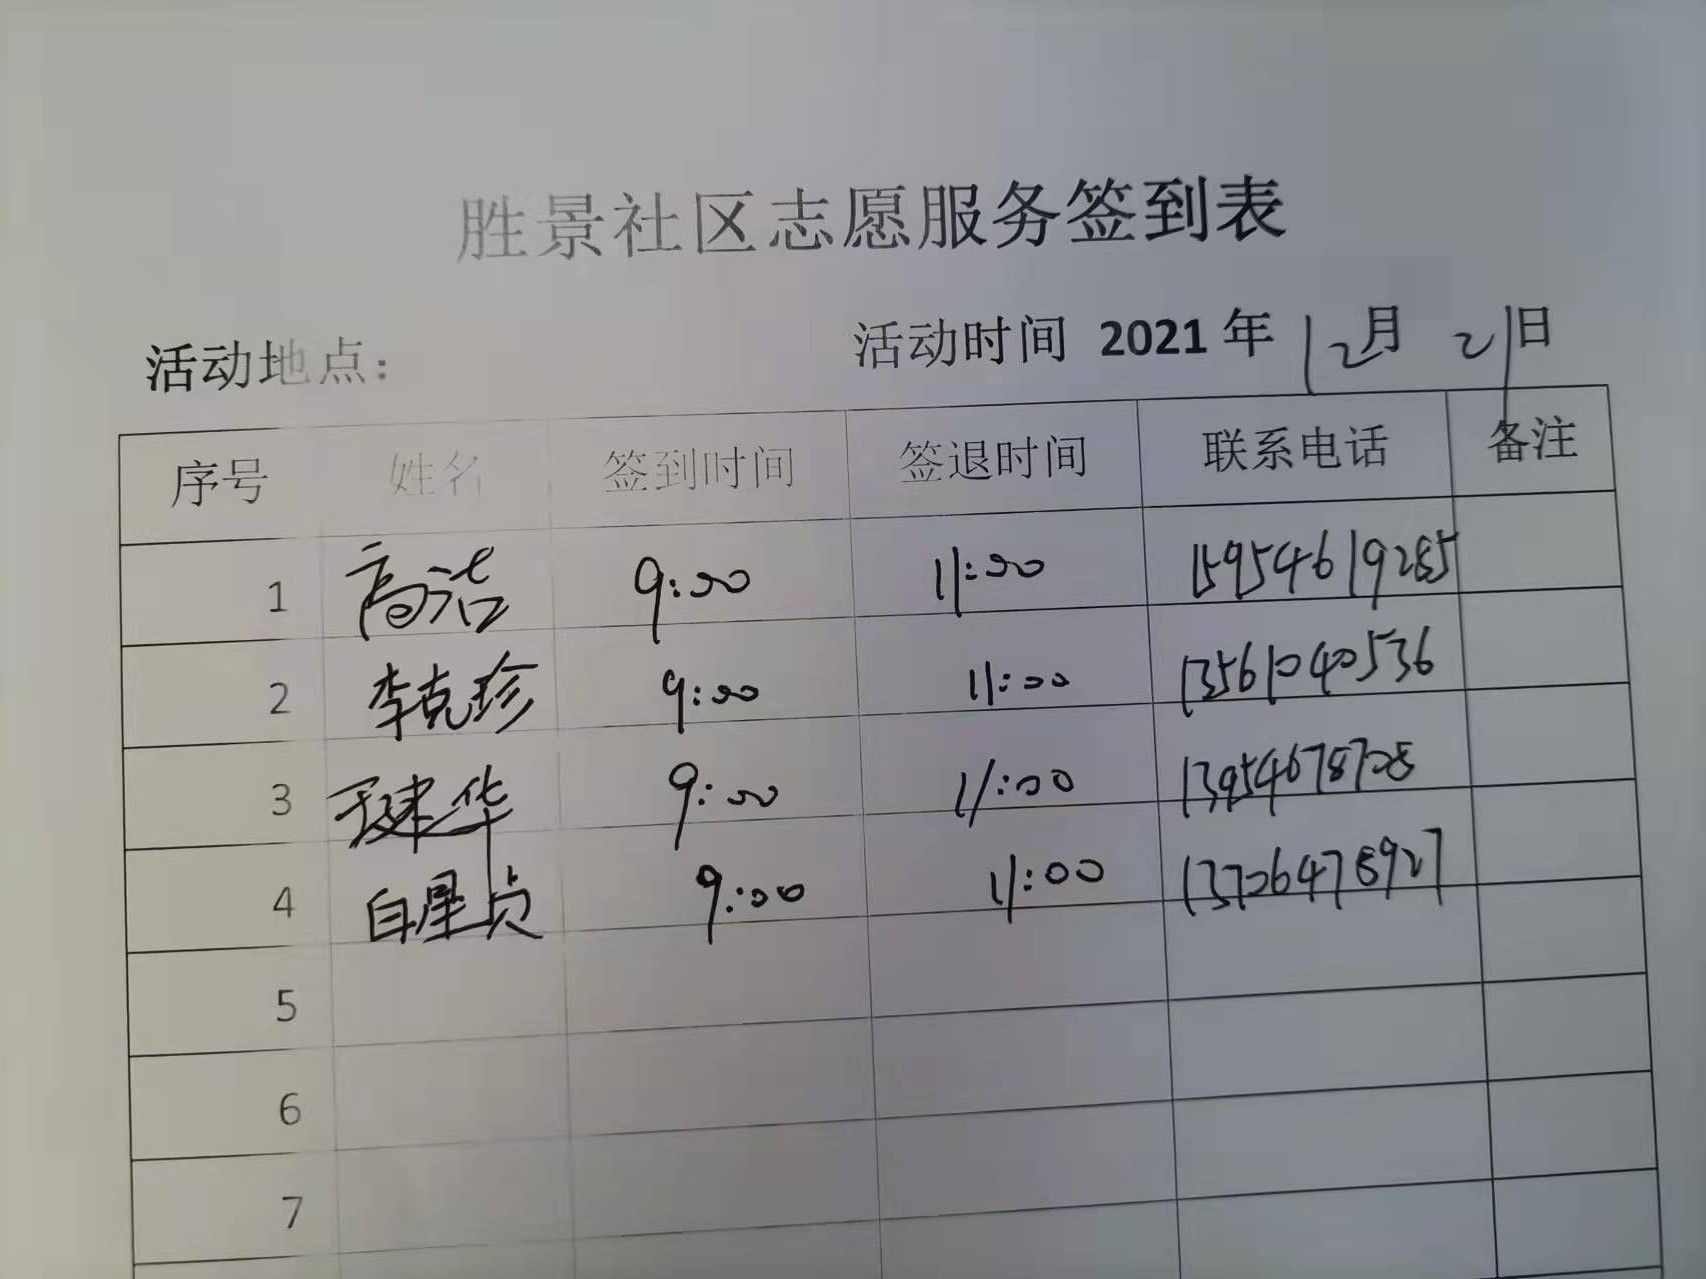 胜景社区志愿服务签到表
活动地点： 活动时间 2021 年 12月 21日
序号 姓名 签到时间 签退时间 联系电话 备注
1 高洁 9:00 11:00 15954619285
2 李克珍 9:00 11:00 13561040536
3 于建华 9:00 11:00 13954678728
4 白星贞 9:00 11:00 13706478927
5
6
7